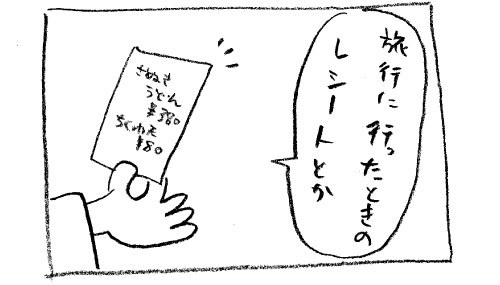 旅行に行ったときの
レシートとか
さぬき
うどん
¥380
ちくわ天
¥80